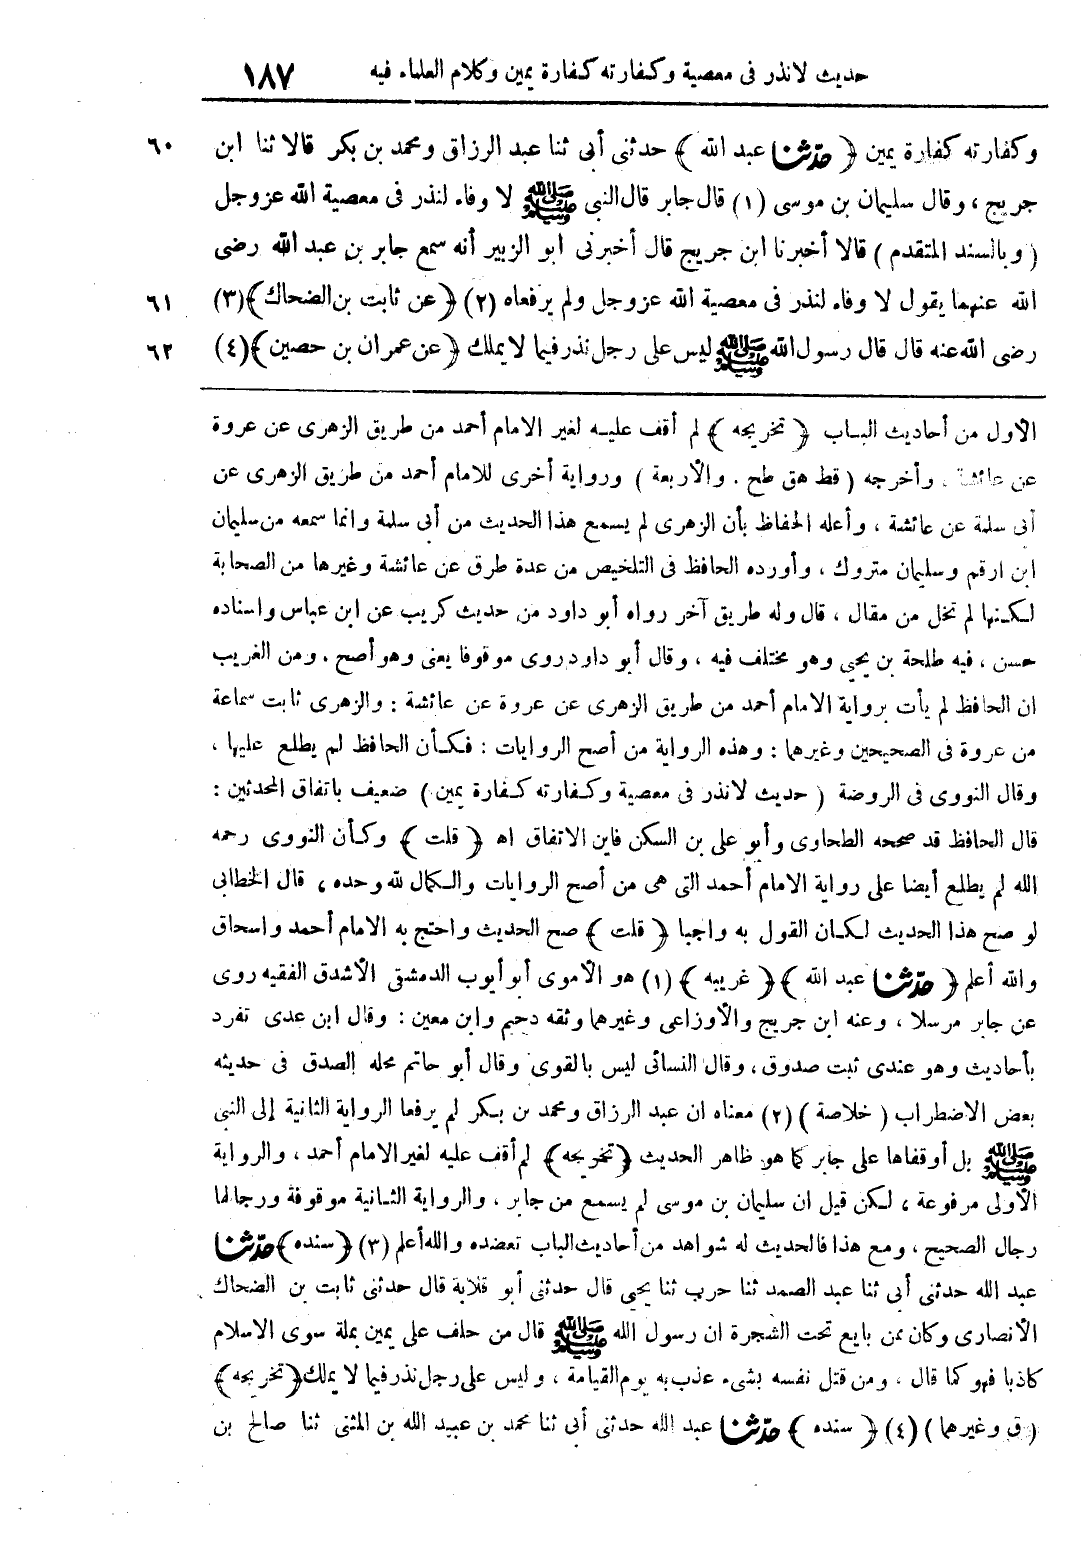 حديث لا نذر فى معصية وكفارته كفارة يمين وكلام العلماء فيه ١٨٧
وكفارته كفارة يمين ﴿ حدّثنا عبد الله ﴾ حدثنى أبى ثنا عبد الرزاق ومحمد بن بكر قالا ثنا ابن ٦٠
جريج ، وقال سليمان بن موسى (١) قال جابر قال النبى ﷺ لا وفاء لنذر فى معصية الله عزوجل
( وبالسند المتقدم ) قالا أخبرنا ابن جريج قال أخبرنى ابو الزبير أنه سمع جابر بن عبد الله رضى
الله عنهما يقول لا وفاء لنذر فى معصية الله عزوجل ولم يرفعاه (٢) ﴿ عن ثابت بن الضحاك ﴾ (٣) ٦١
رضى الله عنه قال قال رسول الله ﷺ ليس على رجل نذر فيما لا يملك ﴿ عن عمران بن حصين ﴾ (٤) ٦٢
الأول من أحاديث الباب ﴿ تخريجه ﴾ لم أقف عليه لغير الامام أحمد من طريق الزهرى عن عروة
عن عائشة ، وأخرجه ( قط هق طح . والأربعة ) ورواية أخرى للامام أحمد من طريق الزهرى عن
أبى سلمة عن عائشة ، وأعله الحفاظ بأن الزهرى لم يسمع هذا الحديث من أبى سلمة وانما سمعه من سليمان
ابن ارقم وسليمان متروك ، وأورده الحافظ فى التلخيص من عدة طرق عن عائشة وغيرها من الصحابة
لكنها لم تخل من مقال ، قال وله طريق آخر رواه أبو داود من حديث كريب عن ابن عباس واسناده
حسن ، فيه طلحة بن يحيى وهو مختلف فيه ، وقال أبو داود روى موقوفا يعنى وهو أصح . ومن الغريب
ان الحافظ لم يأت برواية الامام أحمد من طريق الزهرى عن عروة عن عائشة : والزهرى ثابت سماعة
من عروة فى الصحيحين وغيرهما : وهذه الرواية من أصح الروايات : فكأن الحافظ لم يطلع عليها ،
وقال النووى فى الروضة ( حديث لا نذر فى معصية وكفارته كفارة يمين ) ضعيف باتفاق المحدثين :
قال الحافظ قد صححه الطحاوى وأبو على بن السكن فاين الاتفاق اه ﴿ قلت ﴾ وكأن النووى رحمه
الله لم يطلع أيضا على رواية الامام أحمد التى هى من أصح الروايات والكمال لله وحده ، قال الخطابى
لو صح هذا الحديث لكان القول به واجبا ﴿ قلت ﴾ صح الحديث واحتج به الامام أحمد واسحاق
والله أعلم ﴿ حدّثنا عبد الله ﴾ ﴿ غريبه ﴾ (١) هو الأموى أبو أيوب الدمشقى الأشدق الفقيه روى
عن جابر مرسلا ، وعنه ابن جريج والأوزاعى وغيرهما وثقه دحيم وابن معين : وقال ابن عدى تفرد
بأحاديث وهو عندى ثبت صدوق ، وقال النسائى ليس بالقوى وقال أبو حاتم محله الصدق فى حديثه
بعض الاضطراب ( خلاصة ) (٢) معناه ان عبد الرزاق ومحمد بن بكر لم يرفعا الرواية الثانية إلى النبى
ﷺ بل أوقفاها على جابر كما هو ظاهر الحديث ﴿ تخريجه ﴾ لم أقف عليه لغير الامام أحمد ، والرواية
الأولى مرفوعة ، لكن قيل ان سليمان بن موسى لم يسمع من جابر ، والرواية الثانية موقوفة ورجالها
رجال الصحيح ، ومع هذا فالحديث له شواهد من أحاديث الباب تعضده والله أعلم (٣) ﴿ سنده ﴾ حدّثنا
عبد الله حدثنى أبى ثنا عبد الصمد ثنا حرب ثنا يحيى قال حدثنى أبو قلابة قال حدثنى ثابت بن الضحاك
الأنصارى وكان ممن بايع تحت الشجرة ان رسول الله ﷺ قال من حلف على يمين بملة سوى الاسلام
كاذبا فهو كما قال ، ومن قتل نفسه بشىء عذب به يوم القيامة ، وليس على رجل نذر فيما لا يملك ﴿ تخريجه ﴾
( ق وغيرهما ) (٤) ﴿ سنده ﴾ حدّثنا عبد الله حدثنى أبى ثنا محمد بن عبيد الله بن المثنى ثنا صالح بن